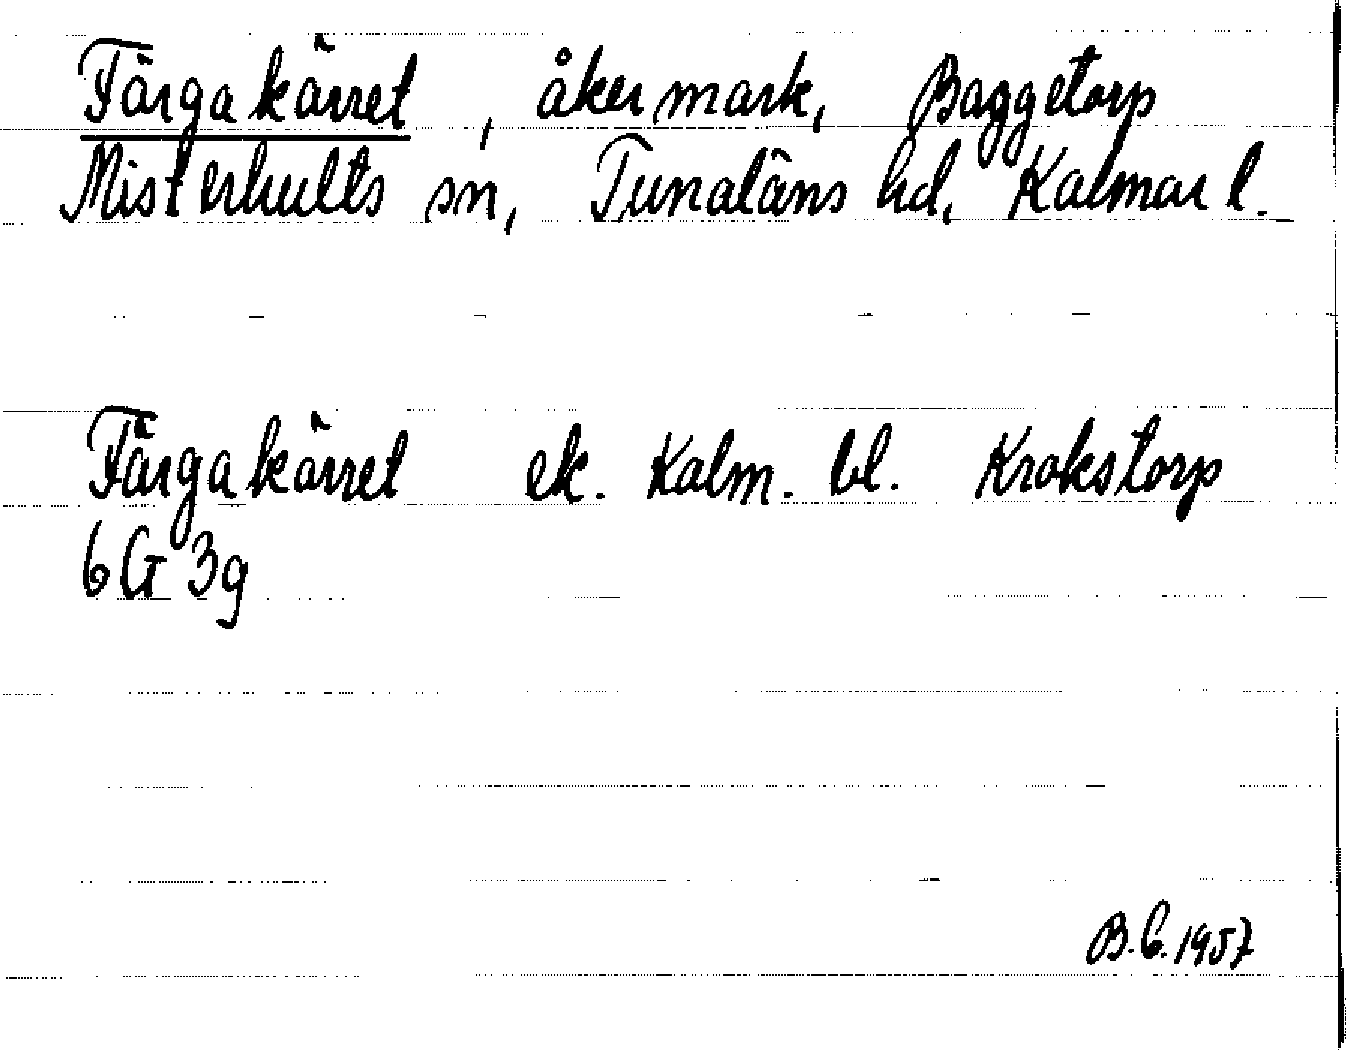 Färgakärret, åkermark, Baggetorp
Misterhults sn, Tunaläns hd, Kalmar l.
Färgakärret ek. Kalm. bl. Krokstorp
6G 3g
B.G. 1957